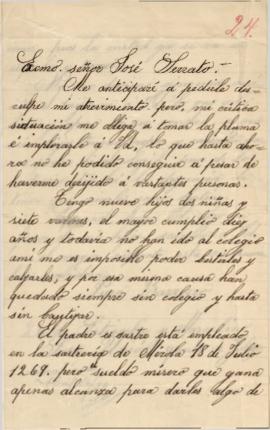 24.
Exmo. señor José Serrato.-
Me anticiparé á pedirle dis-
culpe mi atrevimiento pero, mi critica
situación me obliga á tomar la pluma
é implorarle á Ud, lo que hasta aho-
ra no he podido conseguir á pesar de
haverme dirijido á vartastes personas.
Tengo nueve hijos dos niñas y
siete varones, el mayor cumplio diez
años y todavia no han ido al colegio
ami me es imposible poder bestirles y
calzarles, y por esa misma causa han
quedado siempre sin colegio y hasta
sin bautizar.
El padre es sastre está empleado
en la sastreria de Mérola 18 de Julio
1269. pero sueldo mísero que gana
apenas alcanza para darles algo de